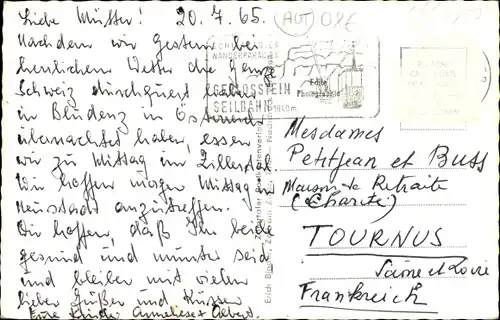 Liebe Mütter! 20.7.65.
Nachdem wir gestern bei
herrlichem Wetter die ganze
Schweiz durchquert haben
in Bludenz in Österreich
übernachtet haben, essen
wir zu Mittag im Zillertal
Wir hoffen morgen Mittag in
Neustadt anzutreffen.
Wir hoffen, daß Ihr beide
gesund und munter seid
und bleiben mit vielen
lieben Grüßen und Küssen
Eure Kinder Anneliese + Albert.
(AUT) 08€
WANDERPARADIES
GERLOSSTEIN
SEILBAHN
Echte
Photographie
Mesdames
Petitjean et Buss
Maison de Retraite
(Charité)
TOURNUS
Saône et Loire
Frankreich